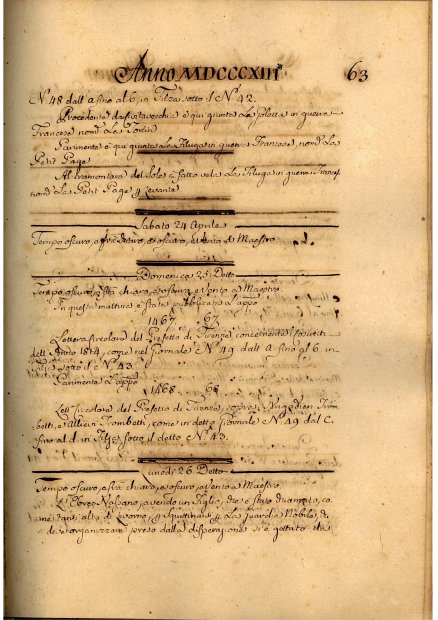 Anno MDCCCXIII 63
N.° 48 dall' a fino al 6 in Filza sotto il N.° 42.
Procedente da Civitavecchia è qui giunta la in guerra
Francese nom.ª La
Parimente è qui giunta La Filuga in guerra Francese nom.ª La
Petit Page
Al tramontare del Sole à fatto vela La Filuga in guerra Franc.
nom.ª La Petit Page p Levante
Sabato 24 Aprile
Tempo oscuro, e oscuro, e Vento a Maestro
Domenica 25 Detto
Tempo oscuro, chiaro, e oscuro e Vento a Maestro
In questa mattina è stata pubblicata L'appo
1467. 67
Lettera Circolare del Prefetto di Firenze concernente i Coscritti
dell' Anno 1814, come nel Giornale C N.° 49 dall' a fino al 6 in
Filza sotto il N.° 43
Parimente L'appo
1468. 68
Lett. Circolare del Prefetto di Firenze, sopra i Brigadieri Trom-
betti, e Allievi Trombetti, come in detto Giornale C N.° 49 dal C.
fino al d. in Filza sotto il detto N.° 43.
Lunedi 26 Detto
Tempo oscuro, e fra chiaro, e oscuro, e Vento a Maestro
L' Ebreo avendo un Figlio, che è stato chiamato, co-
me tanti altri di Livorno, p La Guardia Nobile, di
preso dalla disperazione si è gettato da